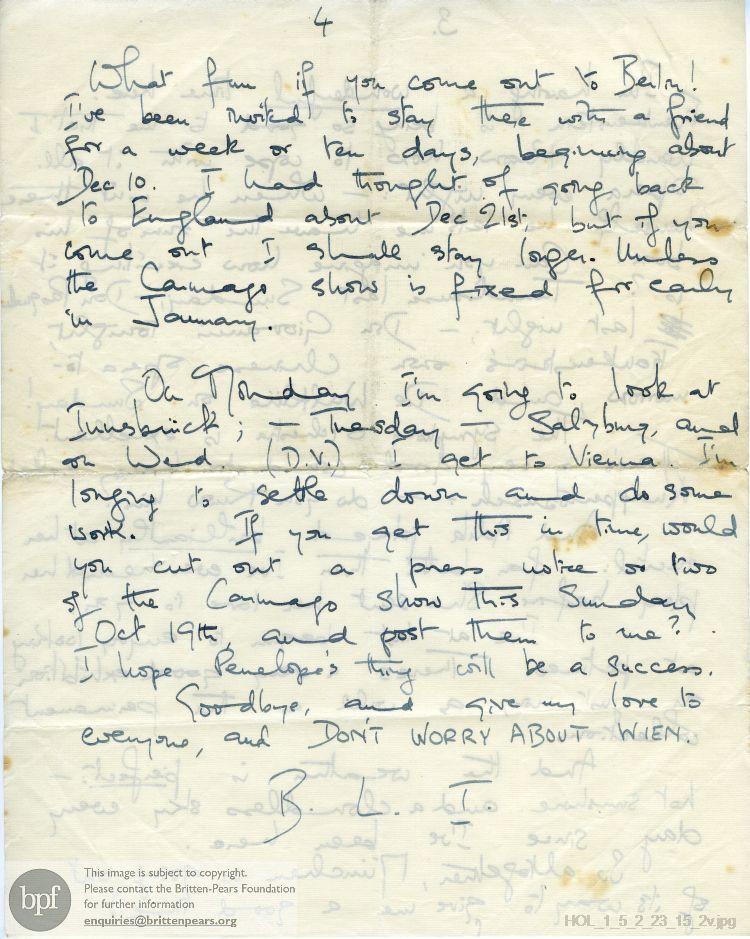 4
What fun if you come out to Berlin!
I've been invited to stay there with a friend
for a week or ten days, beginning about
Dec 10. I had thought of going back
to England about Dec 21st, but if you
come out I shall stay longer. Unless
the Camargo show is fixed for early
in January.
On Monday I'm going to look at
Innsbrück; – Tuesday – Salzburg, and
on Wend. (D.V.) I get to Vienna. I'm
longing to settle down and do some
work. If you get this in time, would
you cut out a press notice or two
of the Camargo show this Sunday
Oct 19th, and post them to me?
I hope Penelope's thing will be a success.
Goodbye, and give my love to
everyone, and DON'T WORRY ABOUT WIEN.
B. L. I.
bpf
This image is subject to copyright.
Please contact the Britten-Pears Foundation
for further information
enquiries@brittenpears.org
HOL_1_5_2_23_15_2v.jpg